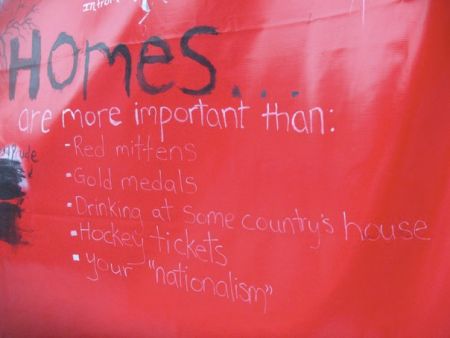 HOMES...
are more important than:
- Red mittens
- Gold medals
- Drinking at some country's house
▪ Hockey tickets
▪ your "nationalism"